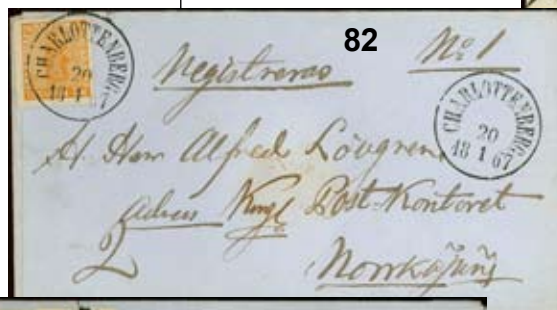 82
CHARLOTTENBERG
20
18 1 67
Registreras
No 1
CHARLOTTENBERG
20
18 1 67
Herr Alfred Lövgren
Kongl Post-Kontoret
Norrköping